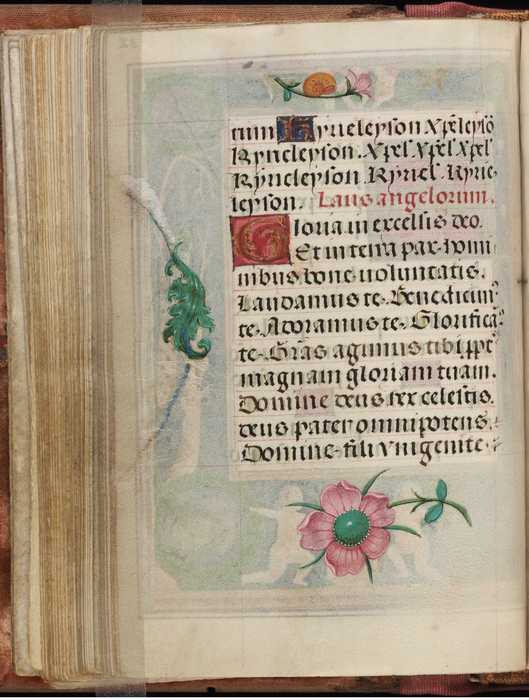 tum Kyrieleyson xp̄eleyso̅
Kyrieleyson. xpel xpel xpel
Kyrieleyson. Kyriel. Kyrie-
leyson. Laus angelorum.
Gloria in excelsis deo.
Et in terra pax homi
nibus bone uoluntatis.
Laudamus te. Benedicim᷒
te. Adoramus te. Glorifica᷒
te. Gr̄as agimus tibi ꝓpt̄
magnam gloriam tuam.
Domine deus rex celestis.
deus pater omnipotens.
Domine fili vnigenite